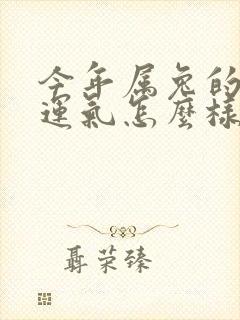 今年属兔的
運氣怎麼樣
聶荣臻